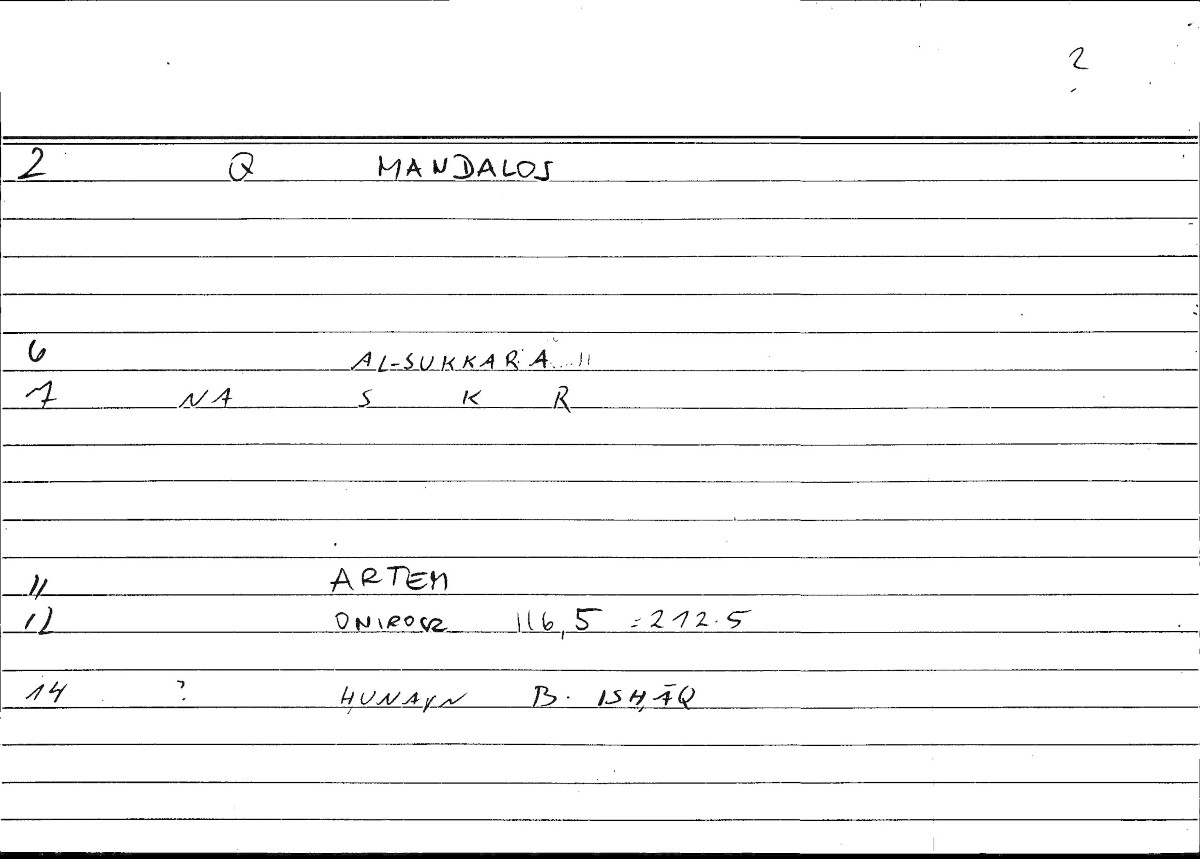 2
2 Q MANDALOS
6 AL-SUKKARA
7 NA S K R
11 ARTEM
12 116,5 = 212.5
14 ? ḤUNAYN B. ISḤĀQ